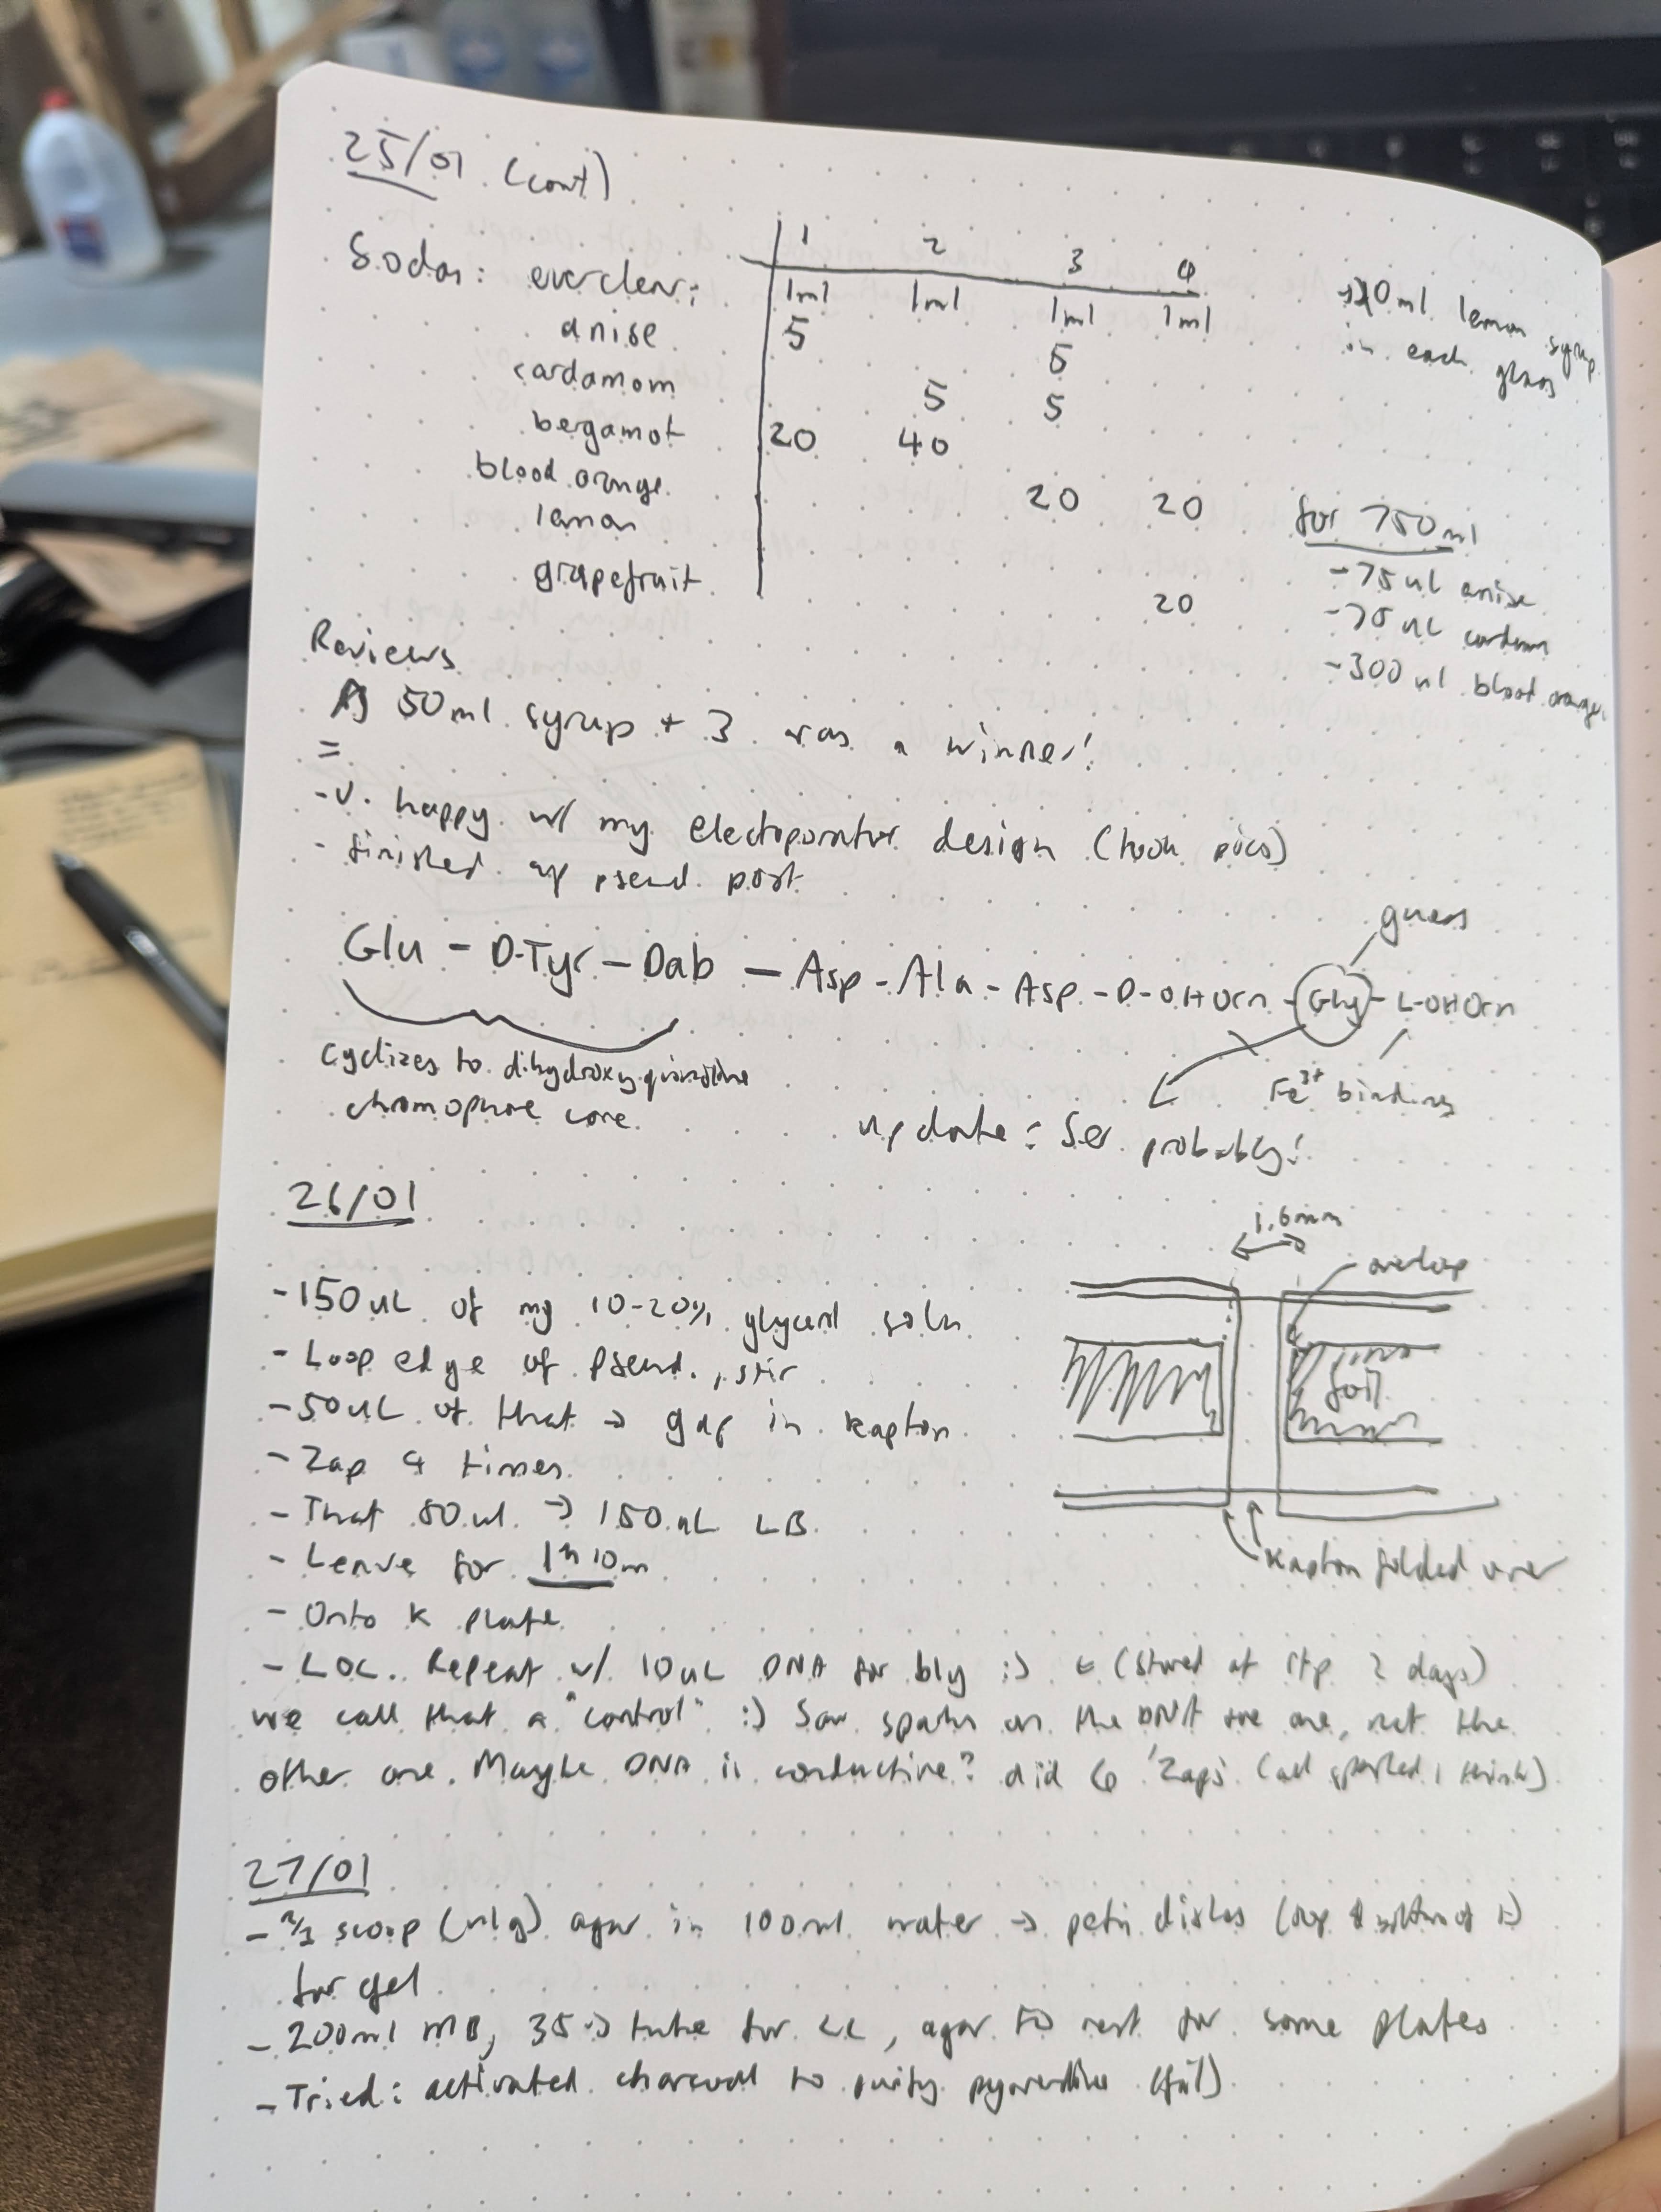 25/01 (cont)
1 2 3 4
Sodas: everclear: 1ml 1ml 1ml 1ml
anise 5 5
cardamom 5 5
bergamot 20 40
blood orange 20 20
lemon
grapefruit 20
ml lemon syrup
in each glass
for 750ml
-75ul anise
-75 uL cardam
-300 ul blood orange
Reviews
50ml syrup + 3 was a winner!
=
-V. happy w/ my electoporator design (took pics)
- finished up pseud. post
Glu - D-Tyr - Dab - Asp - Ala - Asp - D-OHOrn - Gly - L-OHOrn
guess
cyclizes to dihydroxyquinoline
chromophore core.
Fe3+ binding
update: Ser probably!
26/01
-150uL of my 10-20% glycerol soln
- Loop edge of Pseud., stir
-50uL of that → gap in kapton
- Zap 4 times
- That 50ul → 150uL LB
- Leave for 1h 10m
- Onto K plate
- LOL. Repeat w/ 10uL DNA for bly :) ← (stored at rtp 2 days)
we call that a "control" :) Saw sparks on the DNA +ve one, not the
other one. Maybe DNA is conductive? did 6 'Zaps' (all sparked, I think)
1.6mm
overlap
foil
kapton folded over
27/01
- scoop (~1g) agar in 100ml water → petri dishes (top & bottom of 1)
for gel
- 200ml MB, 35 → tube for LC, agar to rest for some plates
- Tried: activated charcoal to purify pyoverdine (fail)